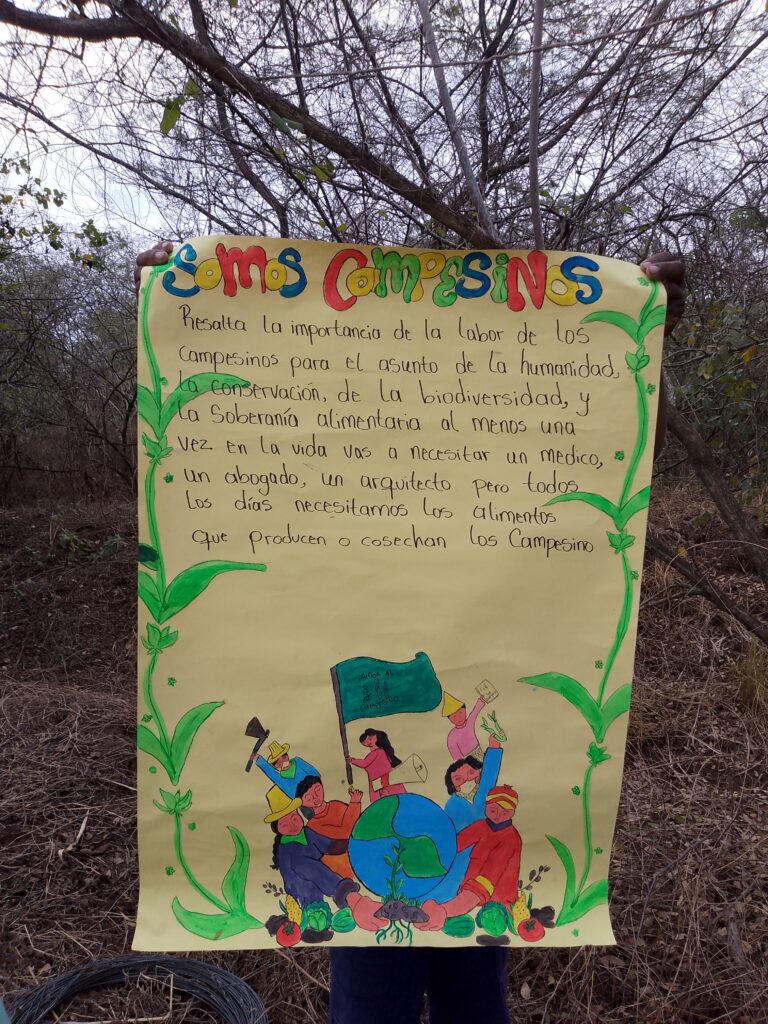 Somos Campesinos
Resalta la importancia de la labor de los
campesinos para el asunto de la humanidad,
la conservación, de la biodiversidad, y
la Soberanía alimentaria al menos una
vez en la vida vas a necesitar un medico,
un abogado, un arquitecto pero todos
los días necesitamos los alimentos
que producen o cosechan los Campesino
al
Campesino